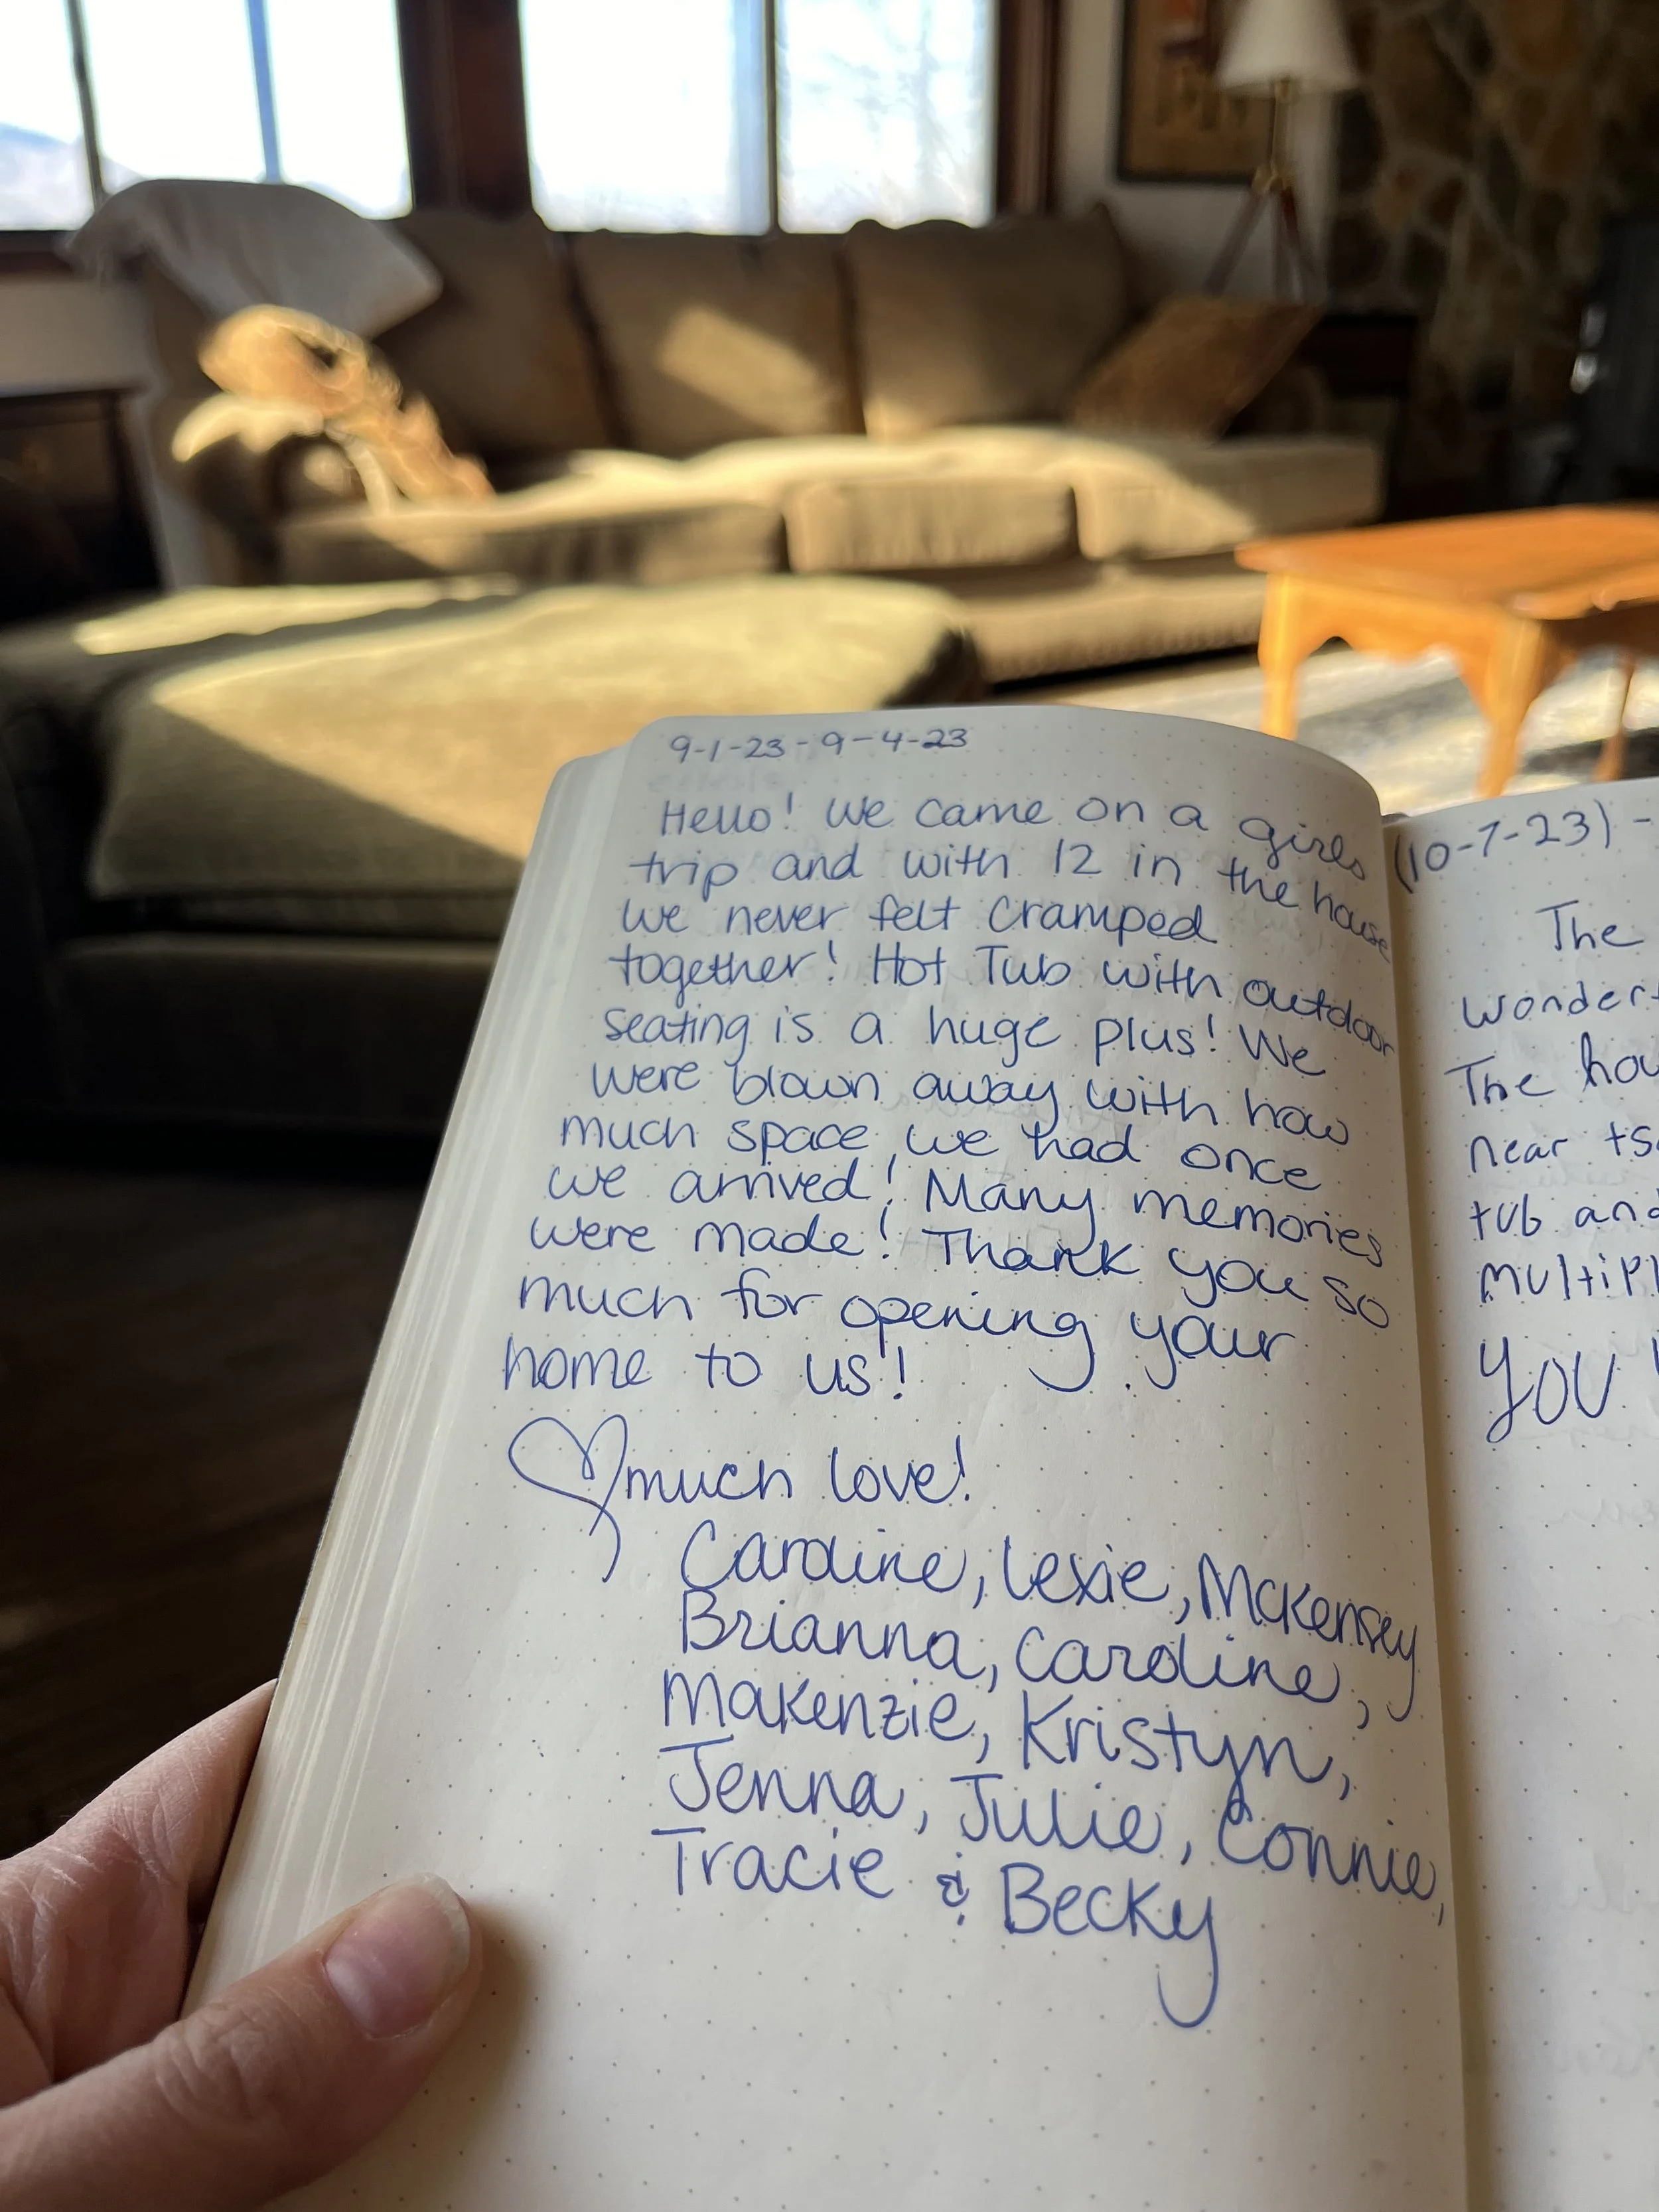 9-1-23 - 9-4-23
Hello! We came on a girls
trip and with 12 in the house
we never felt cramped
together! Hot Tub with outdoor
seating is a huge plus! We
were blown away with how
much space we had once
we arrived! Many memories
were made! Thank you so
much for opening your
home to us!
much love!
Caroline, Lexie, McKensey
Brianna, Caroline,
Makenzie, Kristyn,
Jenna, Julie, Connie,
Tracie & Becky
(10-7-23) -
The
The
near
tub and
YOU